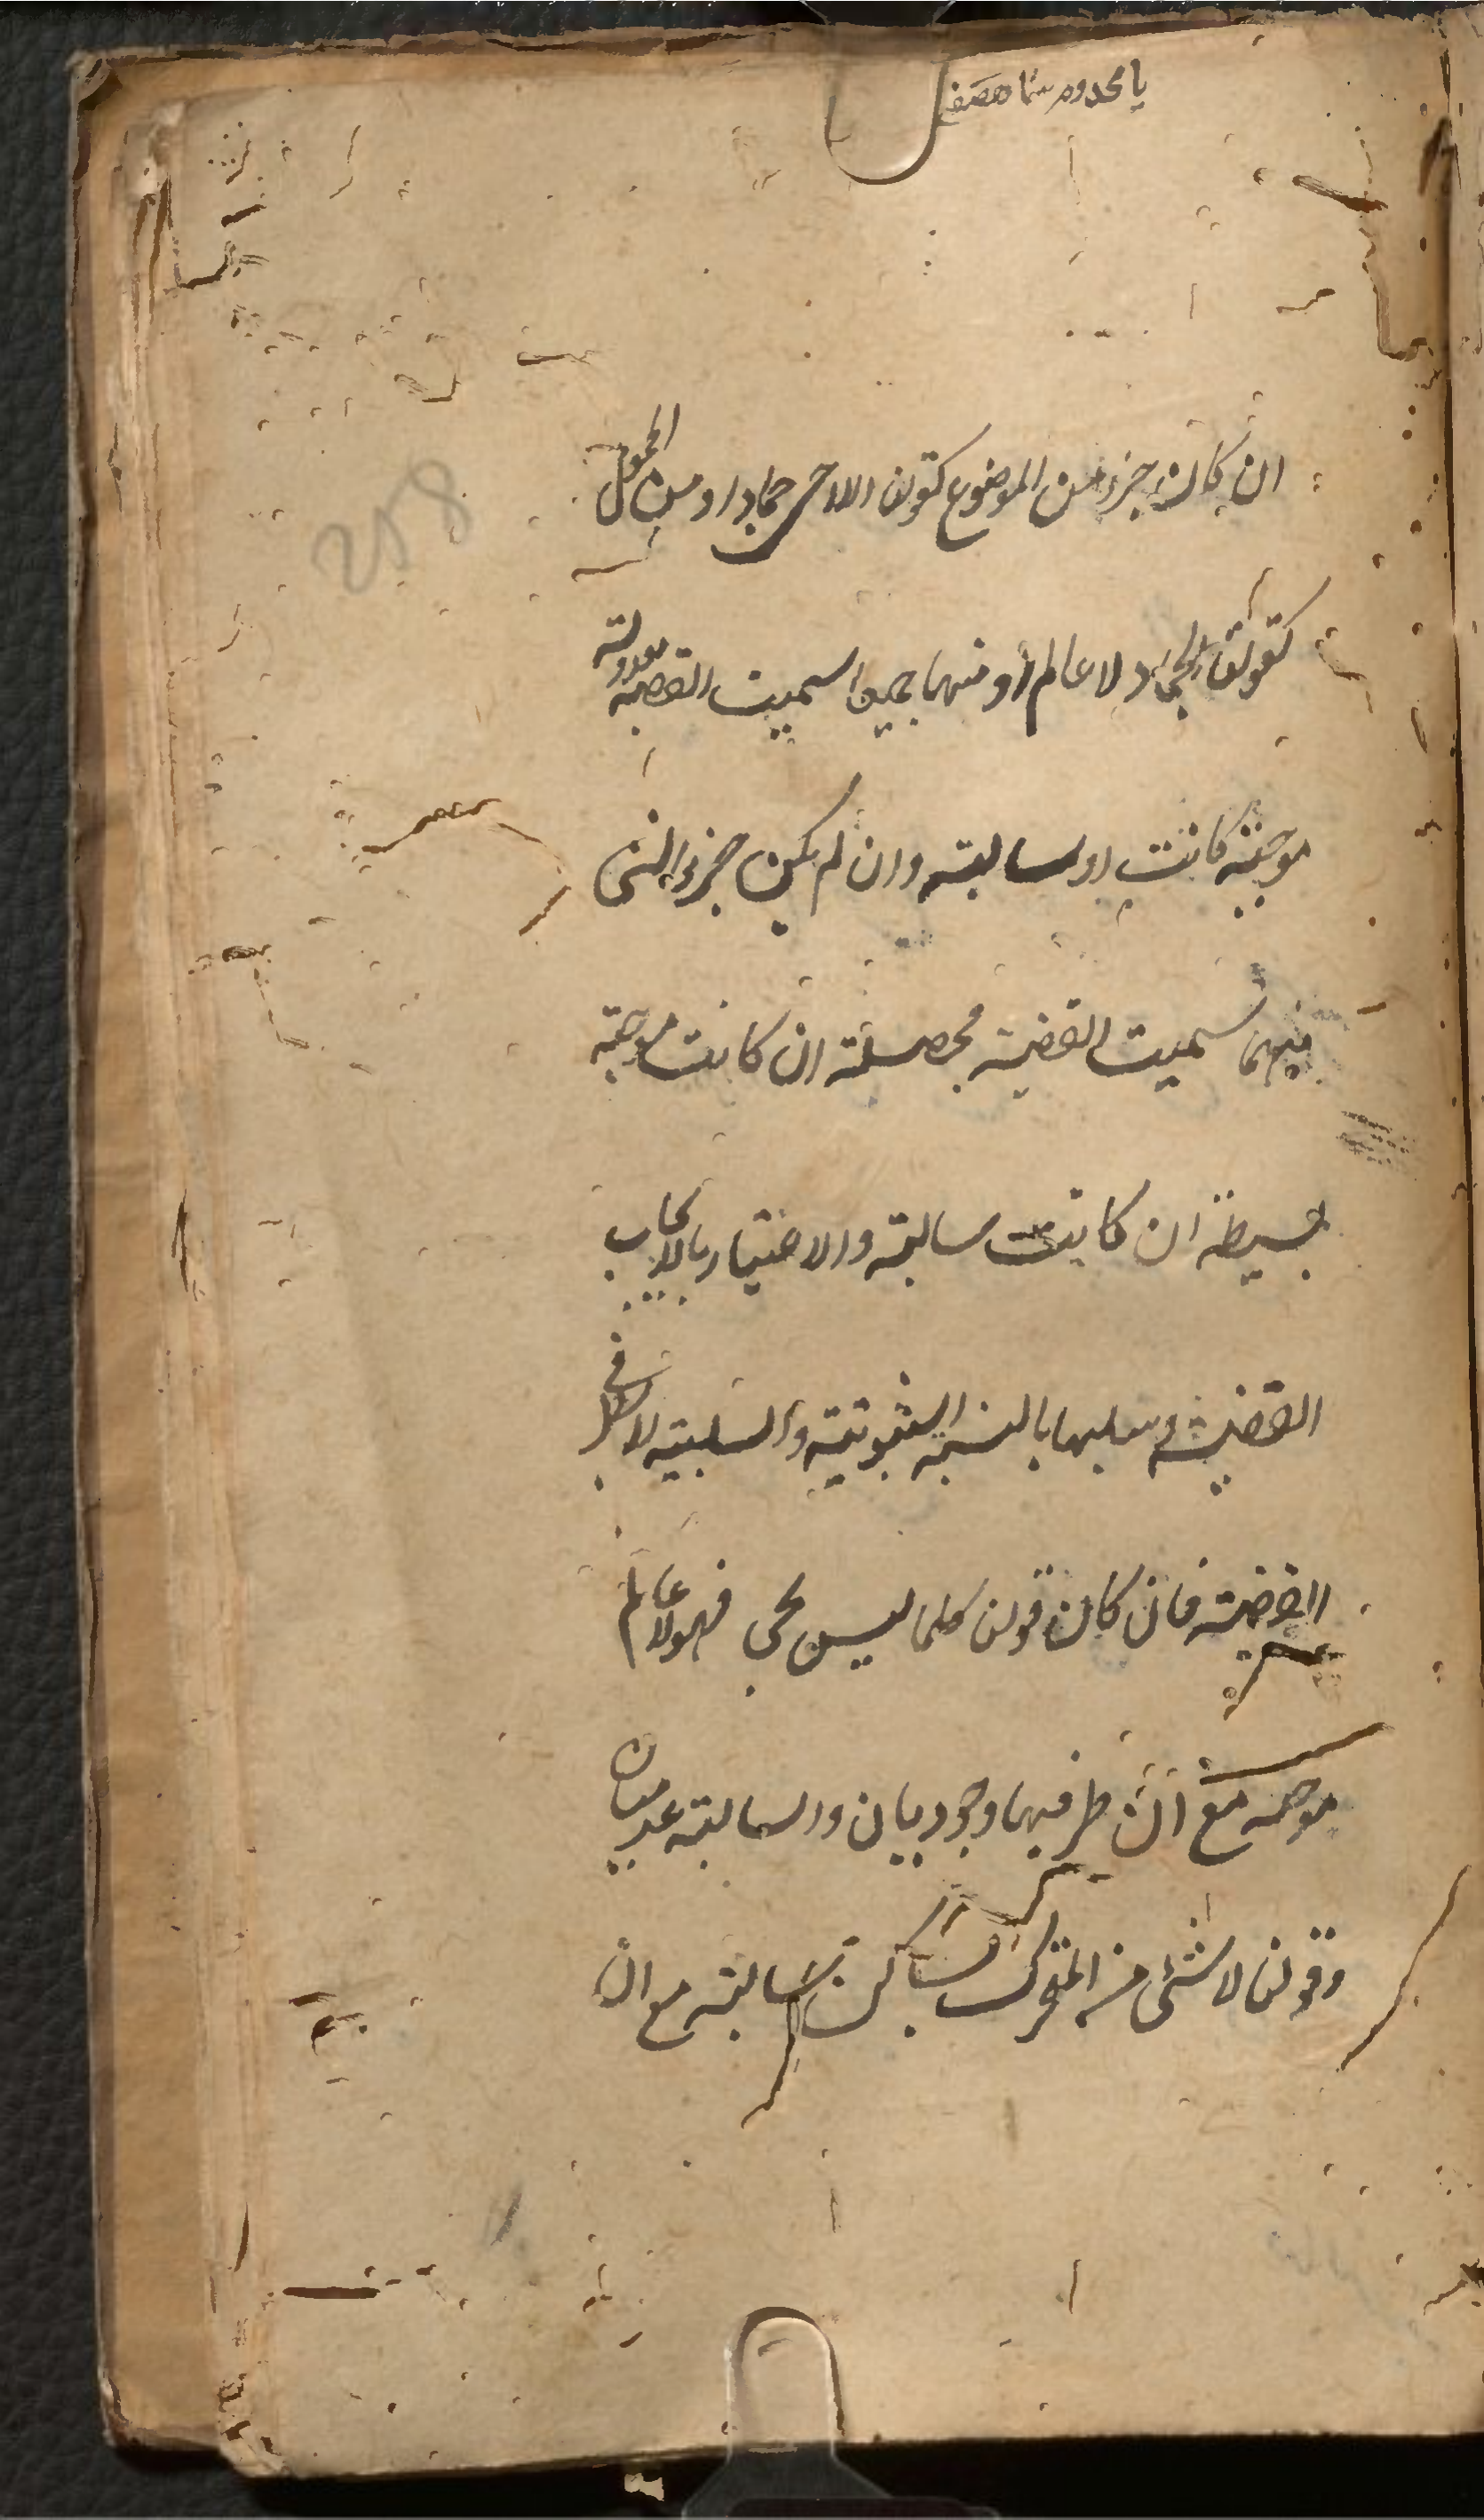 يا مخدوم
ان كان جزء من الموضوع كقولنا اللاحى جماد او من المحمول
كقولنا الجماد لا عالم او منهما جميعا سميت القضية معدولة
موجبة كانت او سالبة وان لم يكن جزء لشئ
منهما سميت القضية محصلة ان كانت موجبة
بسيطة ان كانت سالبة والاعتبار بالايجاب
القضية وسلبها بالنسبة الثبوتية والسلبية لا بطرفى
القضية فان كان قولنا كلما ليس بحى فهو لا عالم
موجبة مع ان طرفيها وجوديان والسالبة عدميان
وقولنا لا شئ من المتحرك بساكن سالبة مع ان